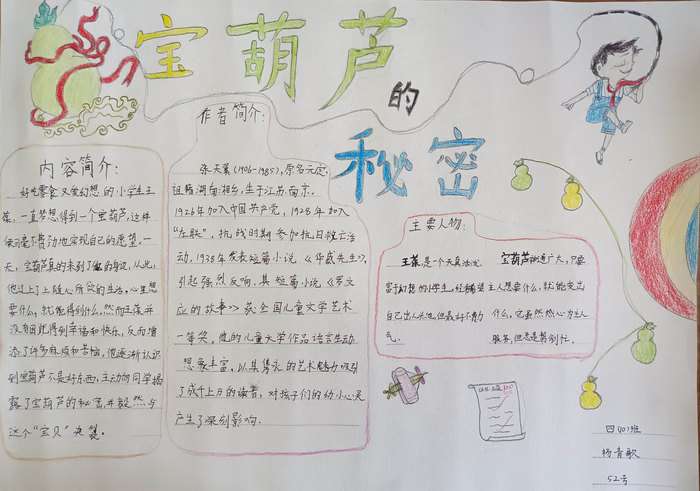 宝葫芦的
秘密
内容简介:
好吃零食又爱幻想的小学生王
葆,一直梦想得到一个宝葫芦,这样
就可实现自己的愿望,一
天,宝葫芦真的来到了他的身边,从此,
他过上了随心所欲的生活,心里想
要什么,就能得到什么。然而王葆并
没有因此得到幸福和快乐,反而增
添了许多麻烦和苦恼,他逐渐认识
到宝葫芦不是好东西,主动向同学揭
露了宝葫芦的秘密并毅然与
这个“宝贝”决裂。
作者简介:
张天翼(1906-1985),原名元定,
祖籍湖南湘乡,生于江苏南京。
1926年加入中国共产党,1928年加入
“左联”,抗战时期参加抗日救亡活
动,1938年发表短篇小说《华威先生》,
引起强烈反响,其短篇小说《罗文
应的故事》获全国儿童文学艺术
一等奖,他的儿童文学作品语言生动
想象丰富,以其隽永的艺术魅力吸引
了成千上万的读者,对孩子们的幼小心灵
产生了深刻影响。
主要人物:
王葆是一个天真活泼
富于幻想的小学生,经常希望
自己出人头地,但最好不费力
气。
宝葫芦神通广大,只要
主人想要什么,就能变出
什么,它虽然热心为主人
服务,但总是帮倒忙。
四(4)班
杨青歌
52号